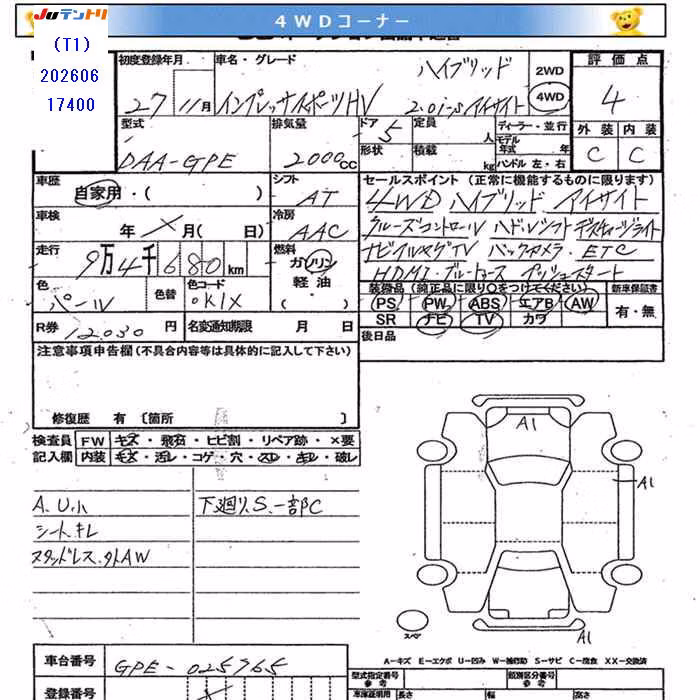 JUテントリ
4WDコーナー
(T1)
202606
17400
初度登録年月 27 11月
車名・グレード ハイブリッド
インプレッサスポーツHV 2.0i-s アイサイト
2WD
4WD
評価点
4
外装 内装
C C
型式
DAA-GPE
排気量
2000cc
ドア 5
形状
定員 人
積載 kg
ディーラー・並行
モデル年式 年
ハンドル 左・右
車歴
自家用・( )
シフト
AT
セールスポイント (正常に機能するものに限ります)
4WD ハイブリッド アイサイト
車検 年 月( 日)
冷房
AAC
走行
9万4千680km
燃料
ガソリン
軽油・
( )
ナビ TV バックカメラ ETC
HDMI ブルートゥース プッシュスタート
色
パール
色替
色コード
OK1X
装備品(純正品に限り○をつけてください) 新車保証書
PS PW ABS エアB AW
SR ナビ TV カワ
有・無
R券 12030円
名変通知期限 月 日
後日品
注意事項申告欄(不具合内容等は具体的に記入して下さい)
修復歴 有 〔箇所 〕
検査員 FW キズ・飛石・ヒビ割・リペア跡・×要
記入欄 内装 キズ・汚レ・コゲ・穴・スレ・キレ・破レ
A.U.小
シート.キレ
スタッドレス.外AW
下廻り.S.一部C
A1
A1
A1
スペア
A-キズ E-エクボ U-凹み W-補修跡 S-サビ C-腐食 XX-交換済
車台番号
GPE-025765
登録番号
型式指定番号
参考
類別区分番号
参考
長さ
幅
高さ